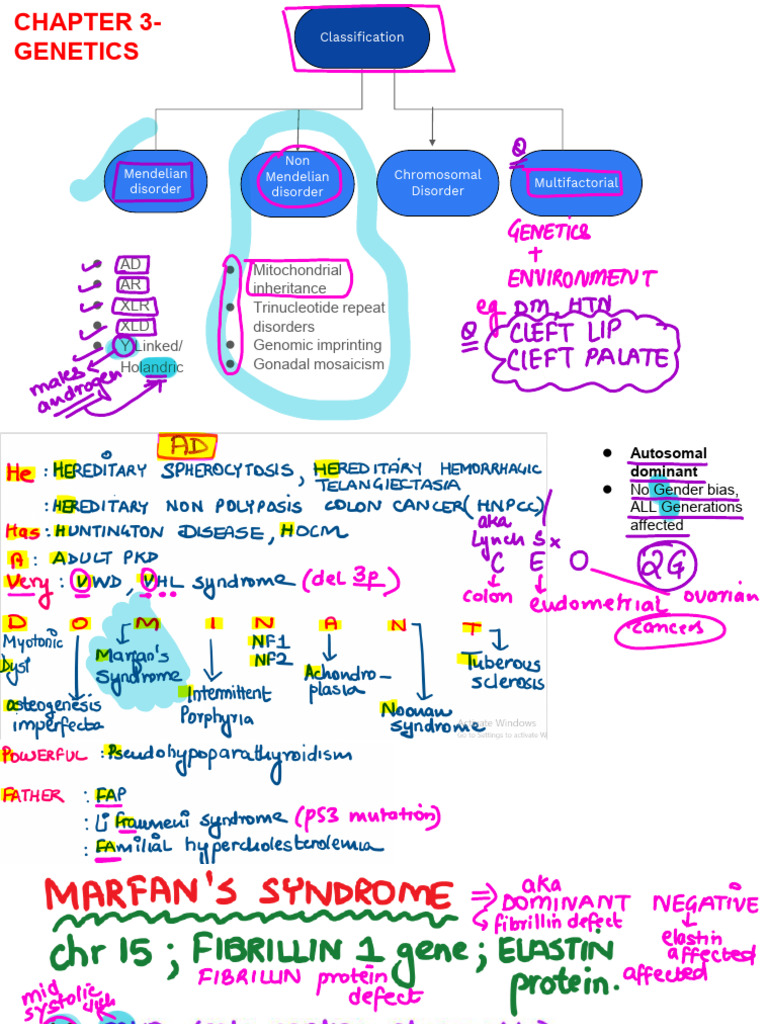 CHAPTER 3-
GENETICS
Classification
Mendelian
disorder
Non
Mendelian
disorder
Chromosomal
Disorder
Q
Multifactorial
AD
AR
XLR
XLD
Y Linked/
Holandric
males
androgen
Mitochondrial
inheritance
Trinucleotide repeat
disorders
Genomic imprinting
Gonadal mosaicism
GENETICS
+
ENVIRONMENT
eg DM, HTN
Q CLEFT LIP
CLEFT PALATE
AD
He : HEREDITARY SPHEROCYTOSIS, HEREDITARY HEMORRHAGIC
TELANGIECTASIA
: HEREDITARY NON POLYPOSIS COLON CANCER (HNPCC)
aka
Lynch Sx
Has : HUNTINGTON DISEASE, HOCM
A : ADULT PKD
Very : VWD, VHL syndrome (del 3p)
C E O
colon endometrial ovarian
cancers
Autosomal
dominant
No Gender bias,
ALL Generations
affected
2G
D O M I N A N T
Myotonic
Dyst
Osteogenesis
imperfecta
Marfan's
Syndrome
Intermittent
Porphyria
NF1
NF2
Achondro-
plasia
Noonan
syndrome
Tuberous
sclerosis
Activate Windows
Go to Settings to activate W
POWERFUL : Pseudohypoparathyroidism
FATHER : FAP
: Li fraumeni syndrome (p53 mutation)
: FAmilial hypercholesterolemia
MARFAN'S SYNDROME ⇒ aka
DOMINANT NEGATIVE
fibrillin defect
elastin
affected
chr 15 ; FIBRILLIN 1 gene ; ELASTIN
protein. affected
FIBRILLIN protein
defect
mid
systolic click